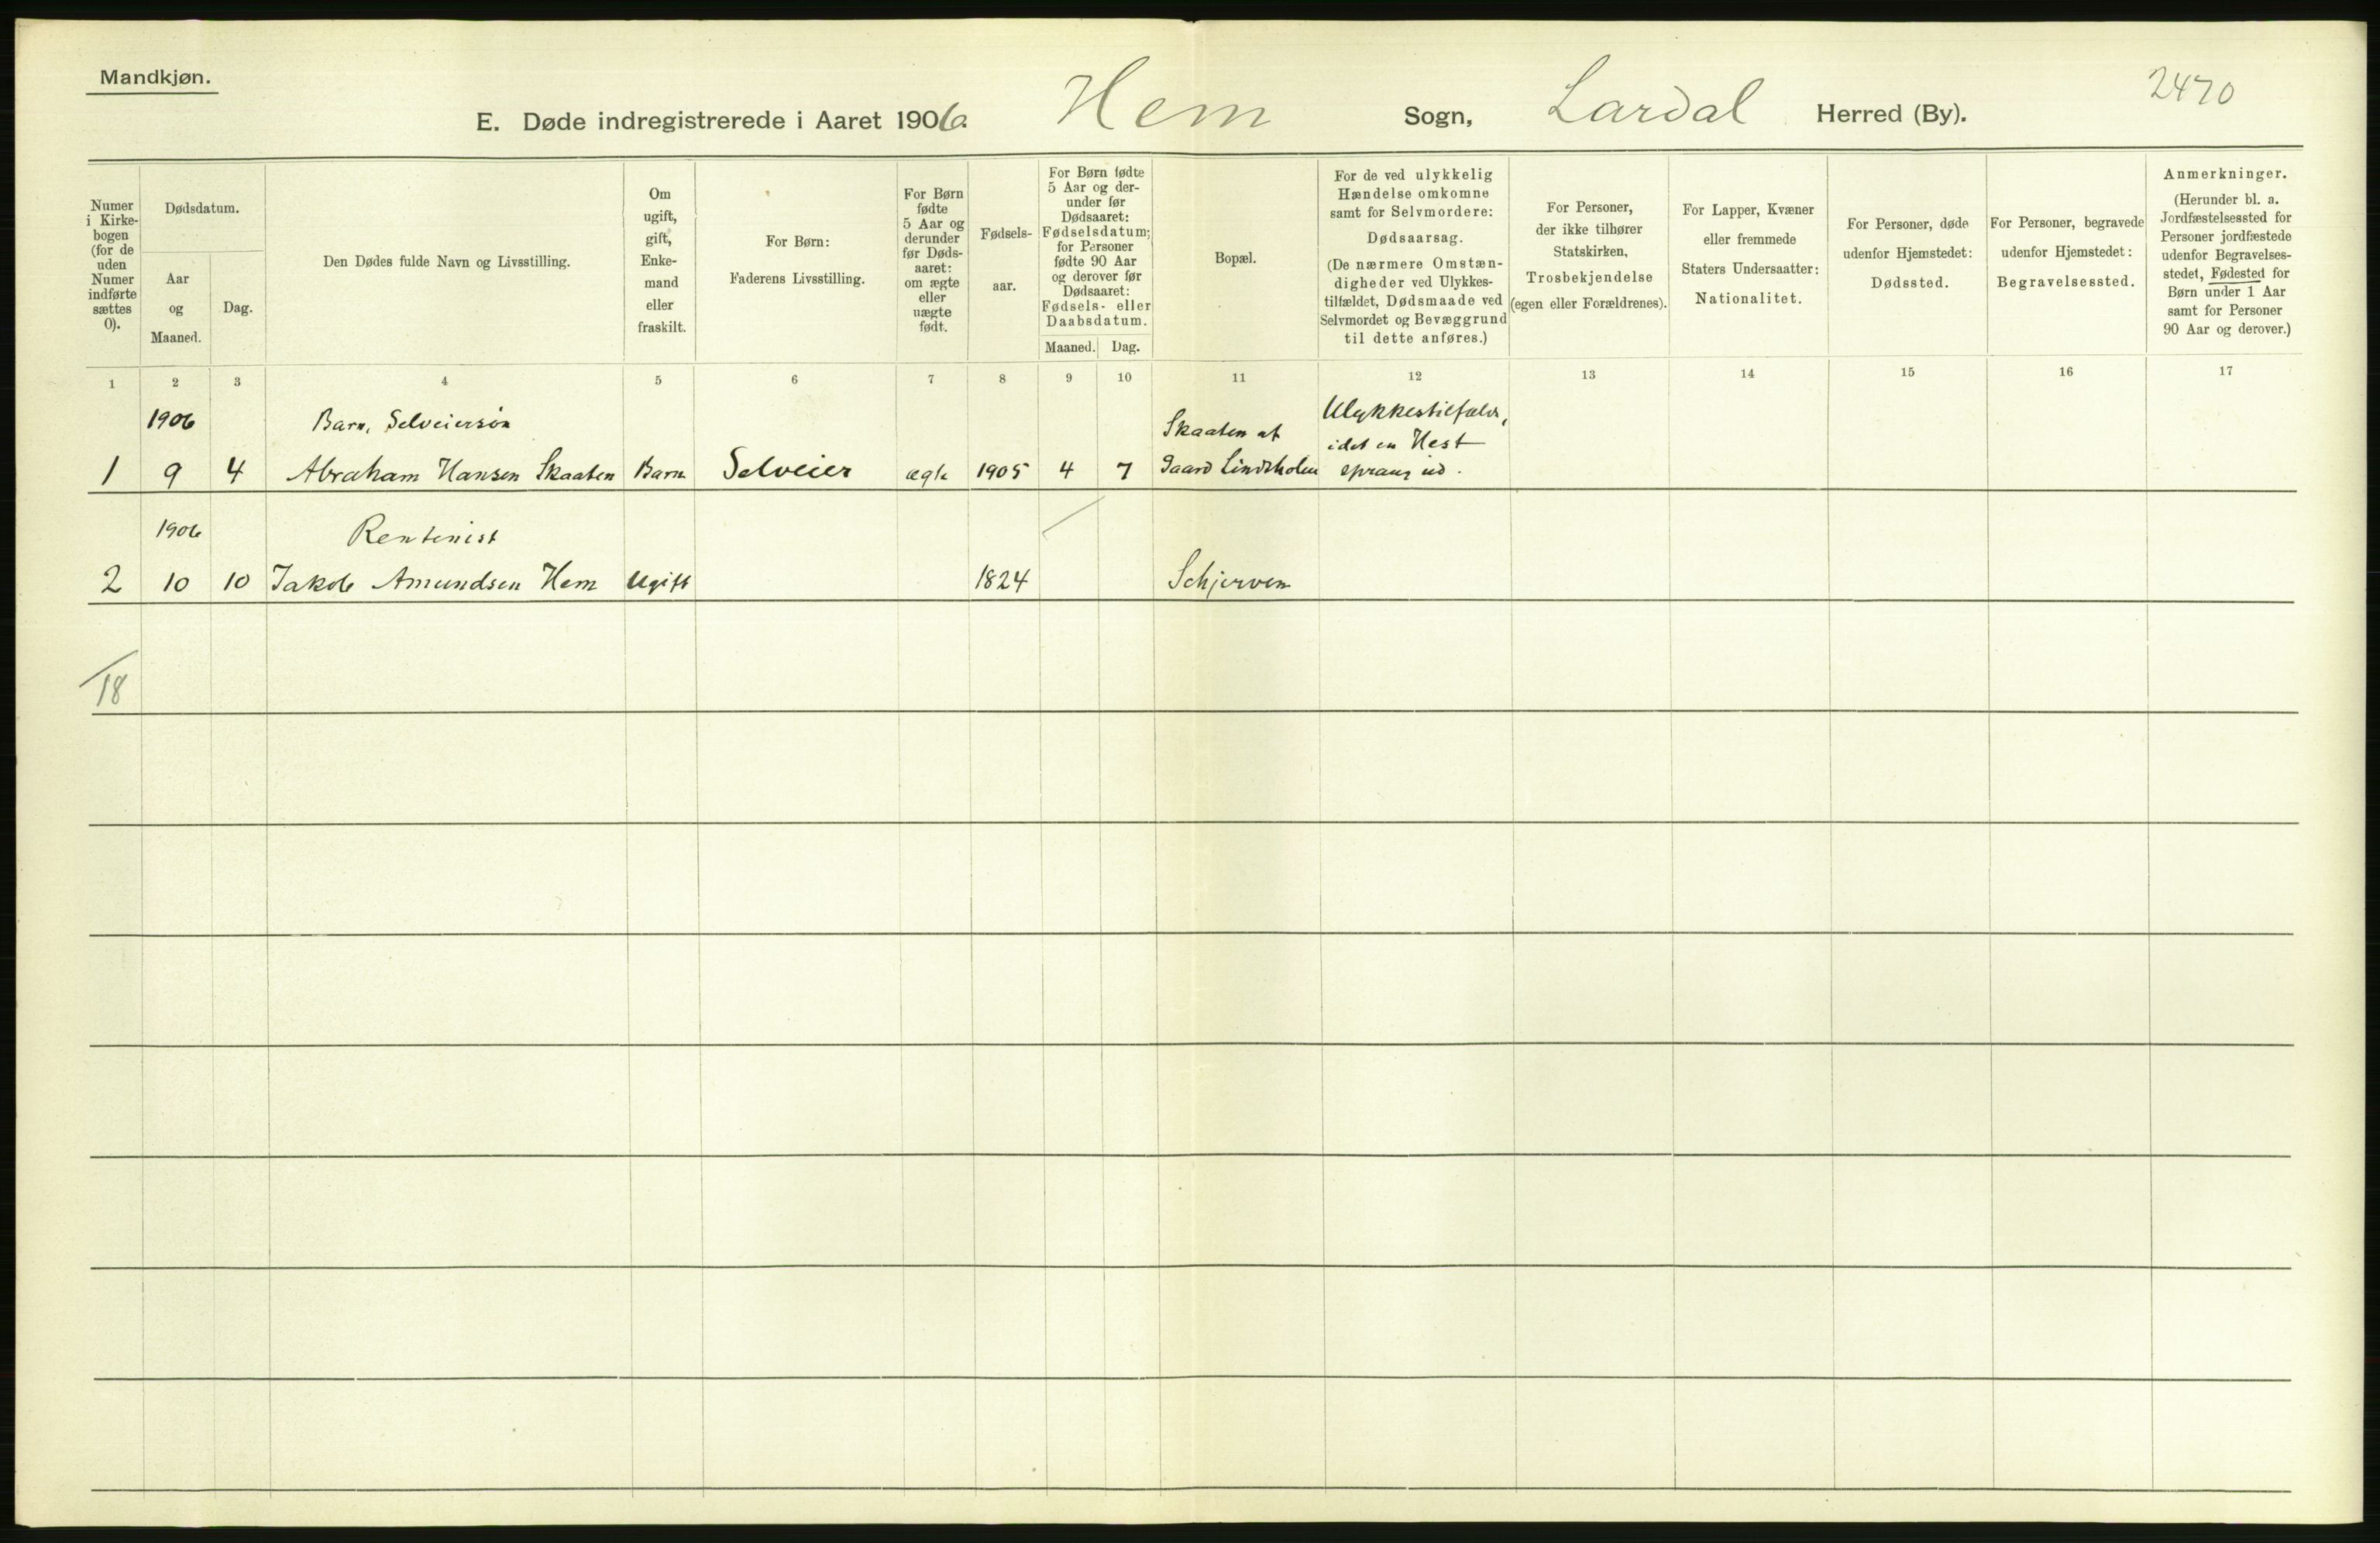 Mandkjøn.
2470
E. Døde indregistrerede i Aaret 1906. Hem Sogn, Lardal Herred (By).
Numer
i Kirke-
bogen
(for de
uden
Numer
indførte
sættes
0).
Dødsdatum.
Aar
og
Maaned.
Dag.
Den Dødes fulde Navn og Livsstilling.
Om
ugift,
gift,
Enke-
mand
eller
fraskilt.
For Børn:
Faderens Livsstilling.
For Børn
fødte
5 Aar og
derunder
før Døds-
aaret:
om ægte
eller
uægte
født.
Fødsels-
aar.
For Børn fødte
5 Aar og der-
under før
Dødsaaret:
Fødselsdatum;
for Personer
fødte 90 Aar
og derover før
Dødsaaret:
Fødsels- eller
Daabsdatum.
Maaned. Dag.
Bopæl.
For de ved ulykkelig
Hændelse omkomne
samt for Selvmordere:
Dødsaarsag.
(De nærmere Omstæn-
digheder ved Ulykkes-
tilfældet, Dødsmaade ved
Selvmordet og Bevæggrund
til dette anføres.)
For Personer,
der ikke tilhører
Statskirken,
Trosbekjendelse
(egen eller Forældrenes).
For Lapper, Kvæner
eller fremmede
Staters Undersaatter:
Nationalitet.
For Personer, døde
udenfor Hjemstedet:
Dødssted.
For Personer, begravede
udenfor Hjemstedet:
Begravelsessted.
Anmerkninger.
(Herunder bl. a.
Jordfæstelsessted for
Personer jordfæstede
udenfor Begravelses-
stedet, Fødested for
Børn under 1 Aar
samt for Personer
90 Aar og derover.)
1 2 3 4 5 6 7 8 9 10 11 12 13 14 15 16 17
1906 Barn, Selveiersøn Skaaten af Ulykkestilfælde,
idet en Hest
1 9 4 Abraham Hansen Skaaten Barn Selveier ægte 1905 4 7 Gaard Lindsholm sprang ud.
1906 Rentenist
2 10 10 Jakob Amundsen Hem Ugift 1824 Schjerven
18